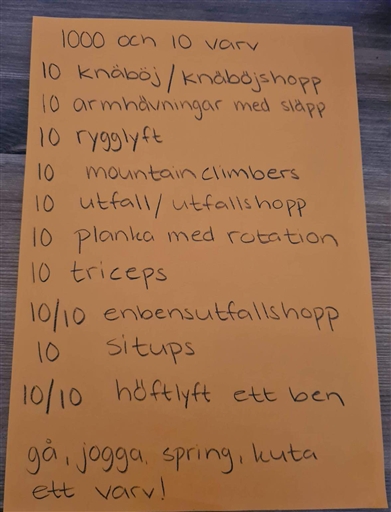 1000 och 10 varv
10 knäböj/knäböjshopp
10 armhävningar med släpp
10 rygglyft
10 mountainclimbers
10 utfall/utfallshopp
10 planka med rotation
10 triceps
10/10 enbensutfallshopp
10 situps
10/10 höftlyft ett ben
gå, jogga, spring, kuta
ett varv!